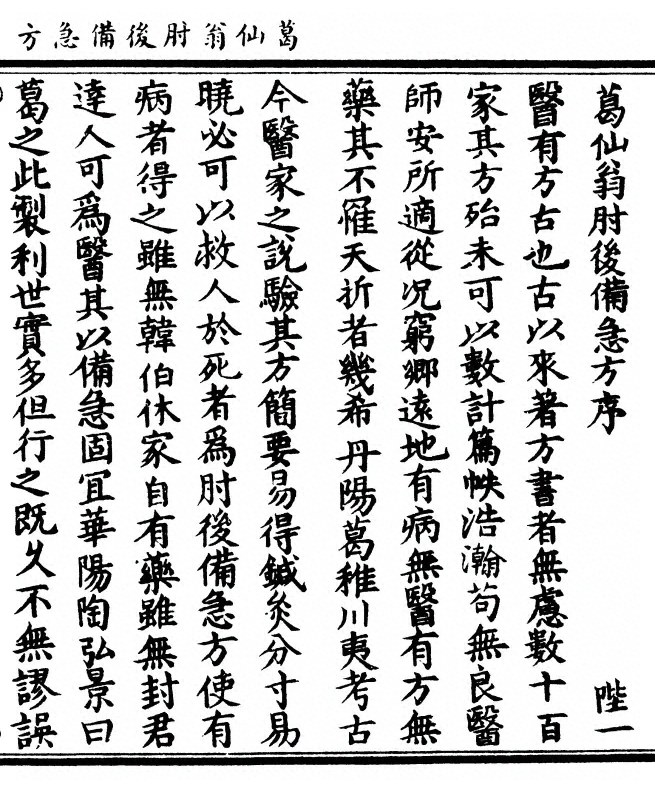 葛仙翁肘後備急方
葛仙翁肘後備急方序 陛一
醫有方古也古以來著方書者無慮數十百
家其方殆未可以數計篇帙浩瀚苟無良醫
師安所適從况窮鄉遠地有病無醫有方無
藥其不罹天折者幾希丹陽葛稚川夷考古
今醫家之說驗其方簡要易得鍼灸分寸易
曉必可以救人於死者爲肘後備急方使有
病者得之雖無韓伯休家自有藥雖無封君
達人可爲醫其以備急固宜華陽陶弘景曰
葛之此製利世實多但行之既久不無謬誤